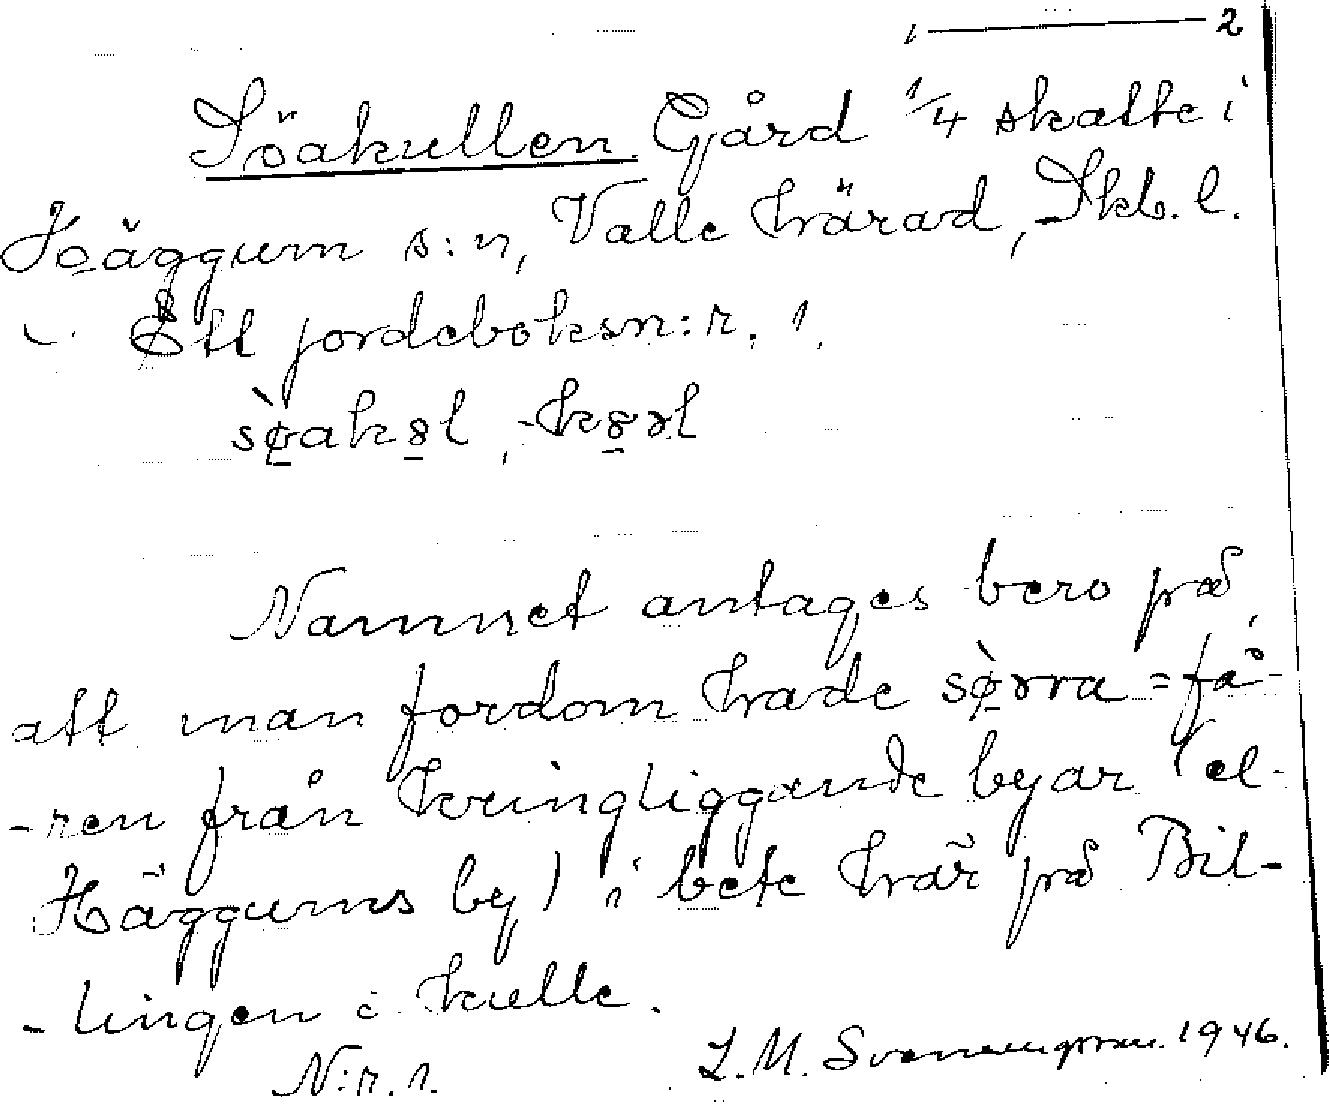 1 — 2
Söakullen. Gård 1/4 skatte i
Häggum s:n, Valle härad, Skb. l.
Ett jordeboksn:r. 1.
Namnet antages bero på,
att man fordom hade sørra = få-
-ren från kringliggande byar (el.
Häggums by) i bete här på Bil-
-lingen i kulle.
N:r. 1. L. M. Svenungsson. 1946.